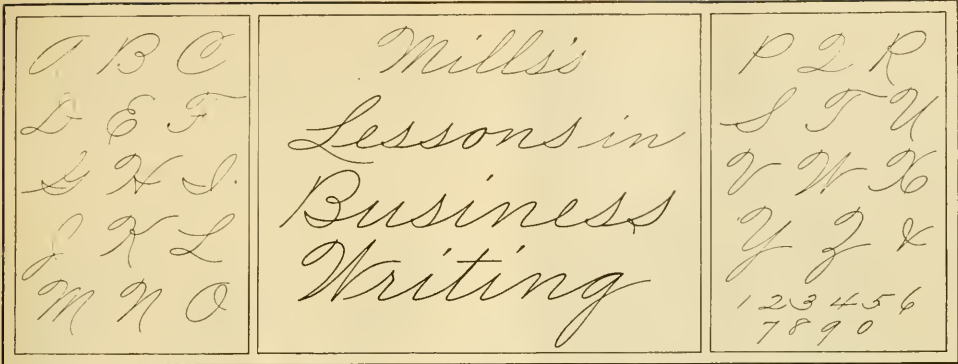 A B C
D E F
G H I.
J K L
M N O
Mills's
Lessons in
Business
Writing
P Q R
S T U
V W X
Y Z &
1 2 3 4 5 6
7 8 9 0